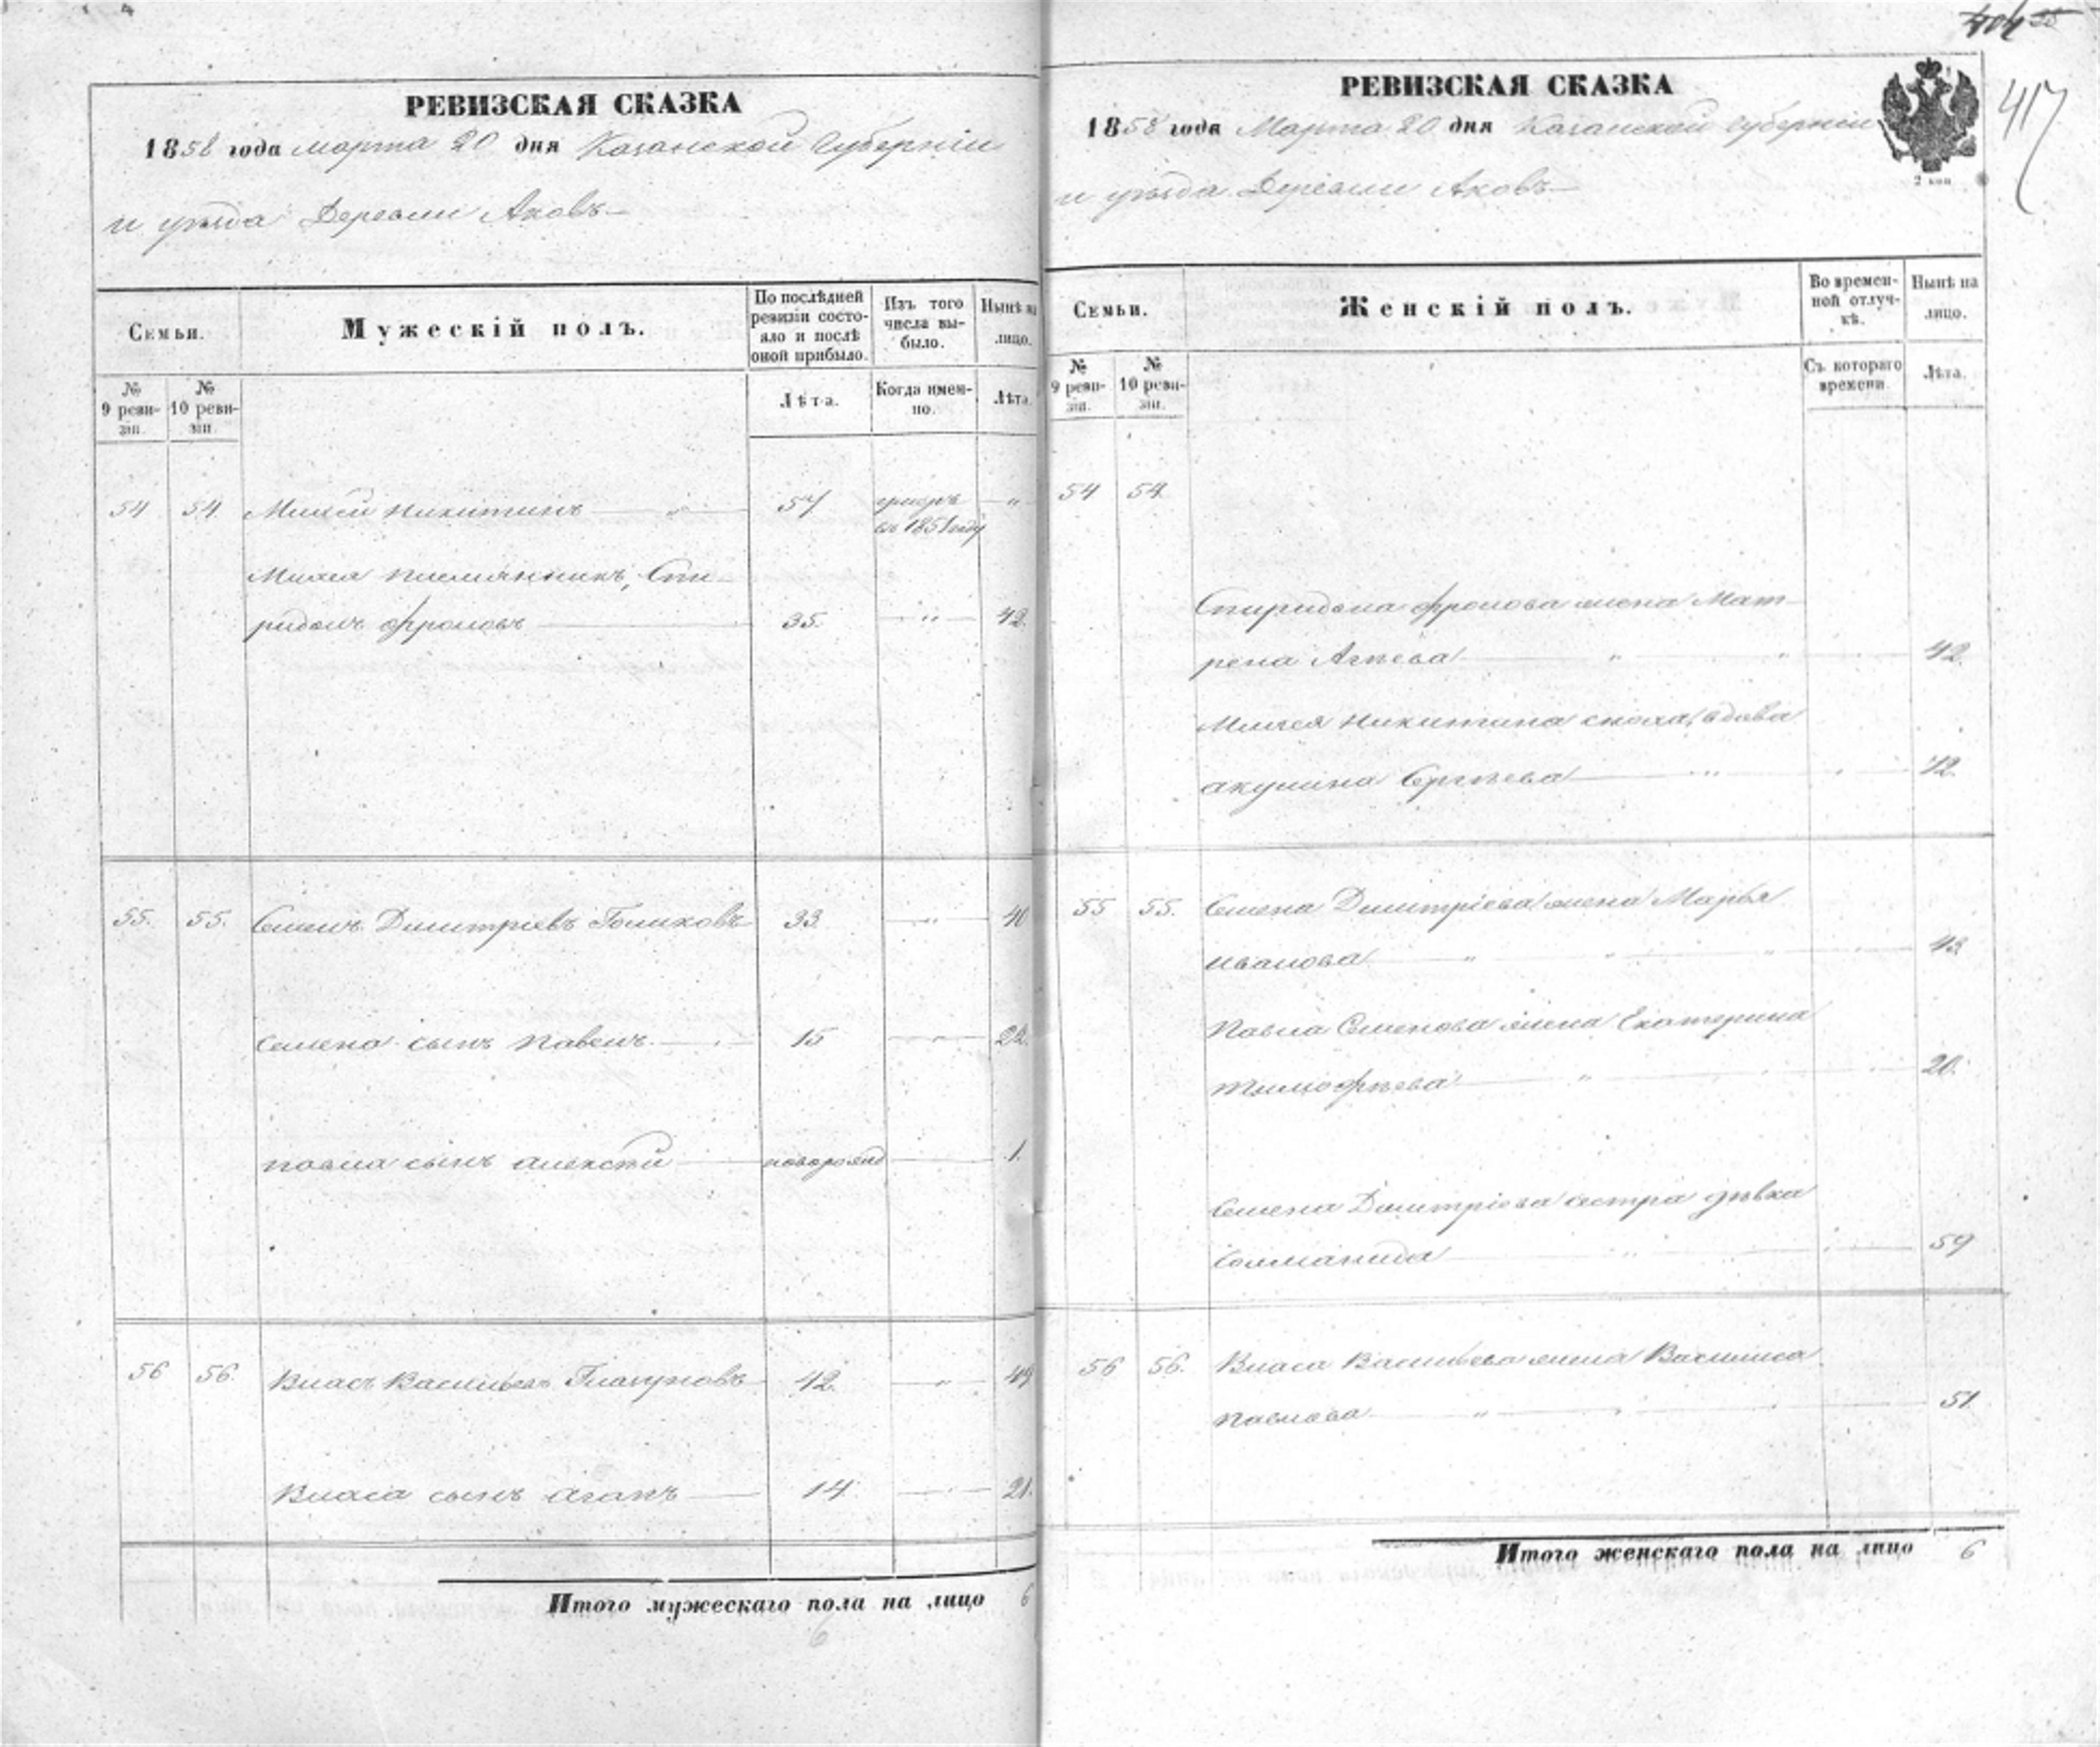 РЕВИЗСКАЯ СКАЗКА
1858 года марта 20 дня Казанской губерніи
и уѣзда Деревни Аковъ
Семьи.
Мужескій полъ.
По послѣдней ревизіи состояло и послѣ оной прибыло.
Изъ того числа выбыло.
Нынѣ на лицо.
№ 9 ревизіи.
№ 10 ревизіи.
Лѣта.
Когда именно.
Лѣта.
54 54 Никитинъ 57
въ 1851 году
племянникъ, Спи-
ридонъ Фроловъ 35. 42.
55. 55. Семенъ Дмитріевъ Голиковъ 33. 40
Семена сынъ Павелъ 15 22.
Павла сынъ Алексѣй новорожд 1.
56 56. Власъ Васильевъ 42. 49
Власа сынъ Агапъ 14. 21.
Итого мужескаго пола на лицо 6
6
417
РЕВИЗСКАЯ СКАЗКА
1858 года Марта 20 дня Казанской губерніи
2 коп
и уѣзда Деревни Аковъ
Семьи.
Женскій полъ.
Во временной отлучкѣ.
Нынѣ на лицо.
№ 9 ревизіи.
№ 10 ревизіи.
Съ котораго времени.
Лѣта.
54 54.
Спиридона Фролова жена Мат-
рена 42.
Никитина сноха, вдова
акулина Сергѣева
55 55. Семена Дмитріева жена Марья
Иванова 43.
Павла Семенова жена Екатерина
Тимофѣева 20.
Семена Дмитріева сестра дѣвка
59
56 56. Власа Васильева жена Василиса
Павлова 51.
Итого женскаго пола на лицо 6